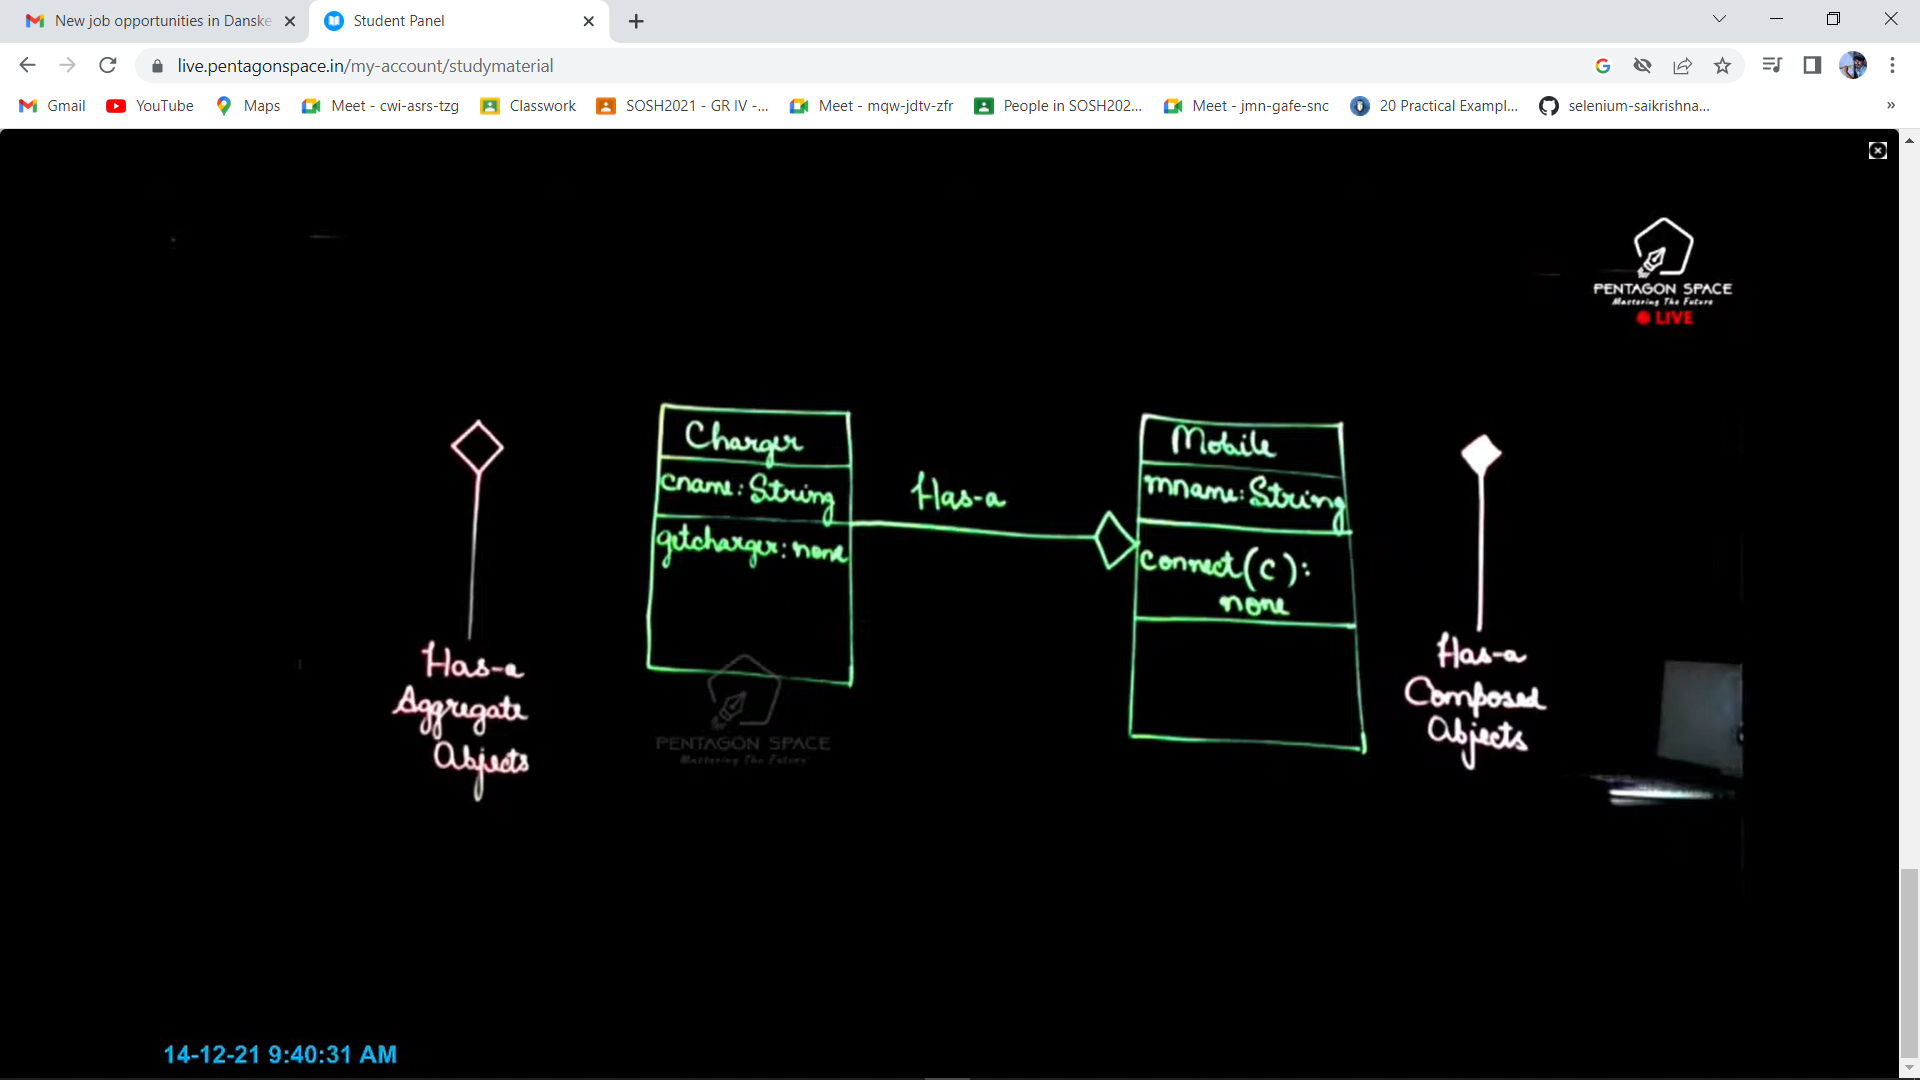 New job opportunities in Danske
Student Panel
live.pentagonspace.in/my-account/studymaterial
Gmail
YouTube
Maps
Meet - cwi-asrs-tzg
Classwork
SOSH2021 - GR IV -...
Meet - mqw-jdtv-zfr
People in SOSH202...
Meet - jmn-gafe-snc
20 Practical Exampl...
selenium-saikrishna...
»
PENTAGON SPACE
Mastering The Future
LIVE
Charger
cname: String
getcharger: none
Has-a
Mobile
mname: String
connect(c):
none
Has-a
Aggregate
Objects
Has-a
Composed
Objects
PENTAGON SPACE
Mastering The Future
14-12-21 9:40:31 AM